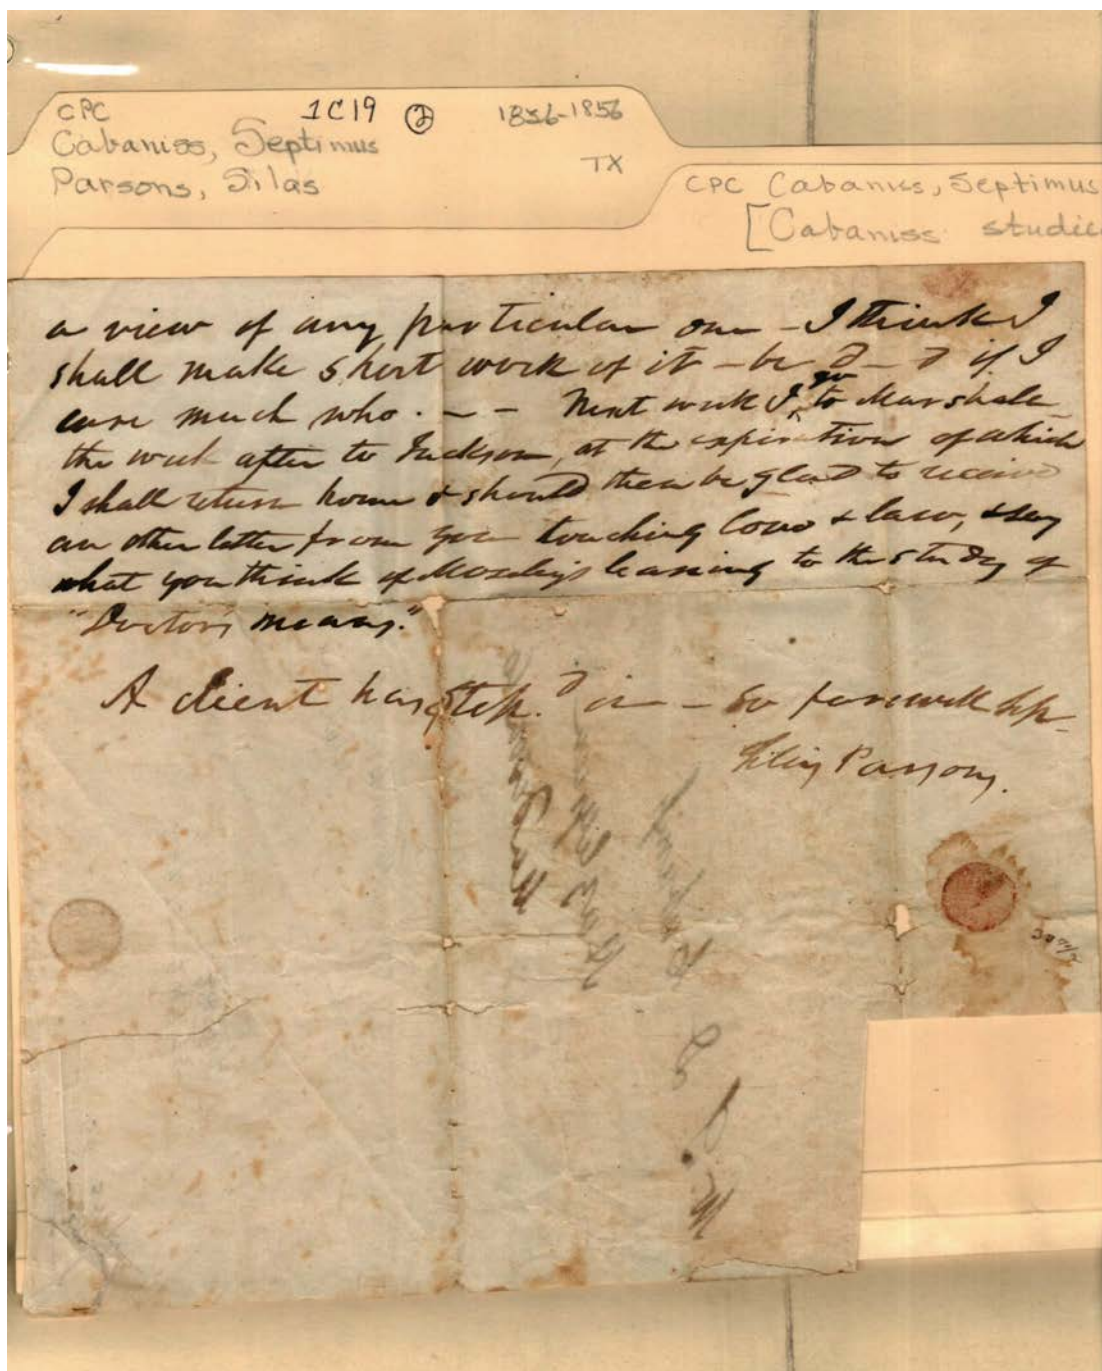 CPC 1C19 2 1836-1856
Cabaniss, Septimus
TX
Parsons, Silas
CPC Cabaniss, Septimus
[Cabaniss studie
a view of any particular one - I think I
shall make short work of it - be d--d if I
care much who. - - Next week I go to Marshall
the week after to Jackson, at the expiration of which
I shall return home & should then be glad to receive
an other letter from you touching love & law, & say
what you think of leaning to the study of
"Doctors means."
A client has step.d in - so farewell Sep
Silas Parsons.